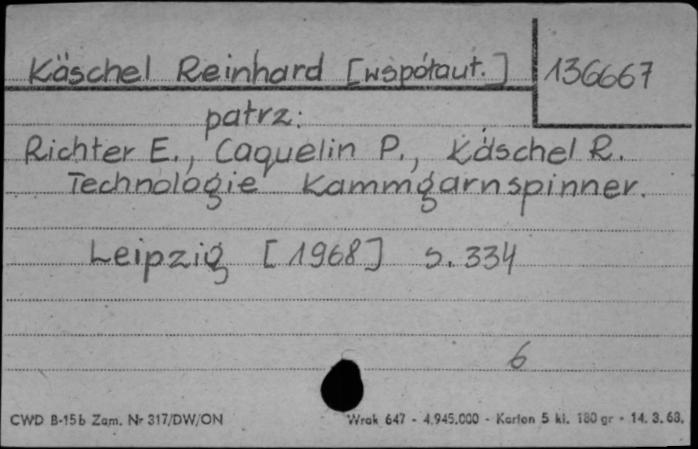 Käschel Reinhard [współaut.] 136667
patrz:
Richter E., Caquelin P., Käschel R.
Technologie Kammgarnspinner.
Leipzig [1968] s. 334
6
CWD B-15b Zam. Nr 317/DW/ON Wrak 647 - 4.945.000 - Karton 5 kl. 180 gr - 14. 3. 68.